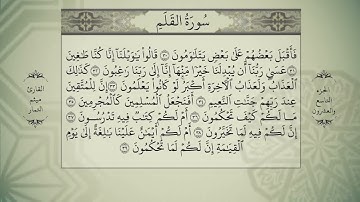 سُورَةُ القَلَمِ
فَأَقْبَلَ بَعْضُهُمْ عَلَىٰ بَعْضٍ يَتَلَٰوَمُونَ ﴿٣٠﴾ قَالُوا۟ يَٰوَيْلَنَآ إِنَّا كُنَّا طَٰغِينَ
﴿٣١﴾ عَسَىٰ رَبُّنَآ أَن يُبْدِلَنَا خَيْرًا مِّنْهَآ إِنَّآ إِلَىٰ رَبِّنَا رَٰغِبُونَ ﴿٣٢﴾ كَذَٰلِكَ
ٱلْعَذَابُ وَلَعَذَابُ ٱلْءَاخِرَةِ أَكْبَرُ لَوْ كَانُوا۟ يَعْلَمُونَ ﴿٣٣﴾ إِنَّ لِلْمُتَّقِينَ
عِندَ رَبِّهِمْ جَنَّٰتِ ٱلنَّعِيمِ ﴿٣٤﴾ أَفَنَجْعَلُ ٱلْمُسْلِمِينَ كَٱلْمُجْرِمِينَ ﴿٣٥﴾
مَا لَكُمْ كَيْفَ تَحْكُمُونَ ﴿٣٦﴾ أَمْ لَكُمْ كِتَٰبٌ فِيهِ تَدْرُسُونَ ﴿٣٧﴾
إِنَّ لَكُمْ فِيهِ لَمَا تَخَيَّرُونَ ﴿٣٨﴾ أَمْ لَكُمْ أَيْمَٰنٌ عَلَيْنَا بَٰلِغَةٌ إِلَىٰ يَوْمِ
ٱلْقِيَٰمَةِ إِنَّ لَكُمْ لَمَا تَحْكُمُونَ ﴿٣٩﴾
الجزء
التاسع
والعشرون
القارئ
ميثم
التمار